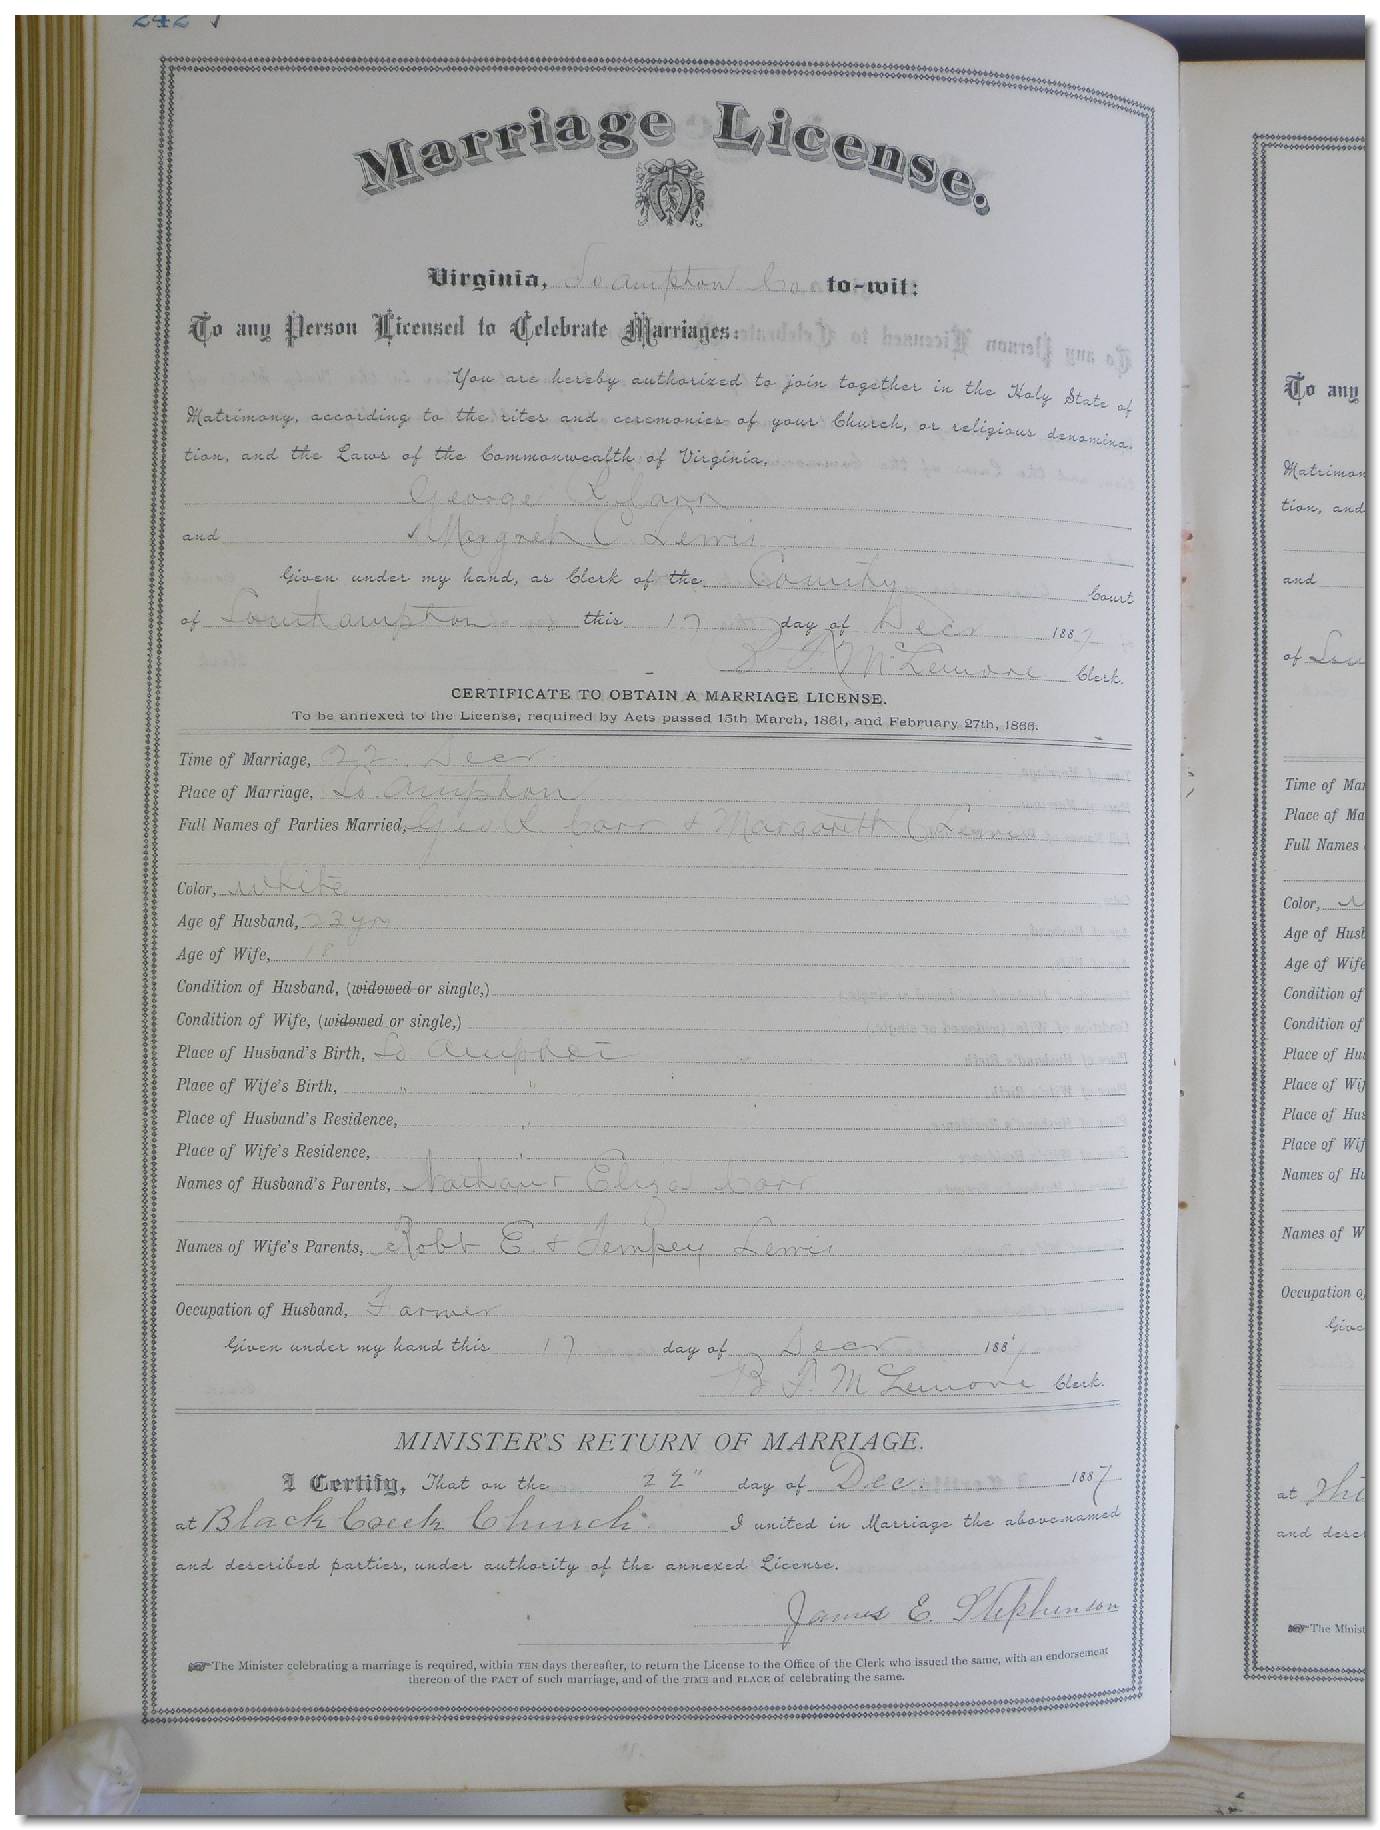 242
Marriage License.
Virginia, So ampton Co to-wit:
To any Person Licensed to Celebrate Marriages:
You are hereby authorized to join together in the Holy State of
Matrimony, according to the rites and ceremonies of your Church, or religious denomina-
tion, and the Laws of the Commonwealth of Virginia,
George L Carr
and & Margreth C Lewis
Given under my hand, as Clerk of the County Court
of Southampton this 17 day of Decr 1887
B. F. McLemore Clerk.
CERTIFICATE TO OBTAIN A MARRIAGE LICENSE.
To be annexed to the License, required by Acts passed 15th March, 1861, and February 27th, 1866.
Time of Marriage, 22 Decr
Place of Marriage, So Ampton
Full Names of Parties Married, Geo L Carr & Margareth C Lewis
Color, White
Age of Husband, 23 yrs
Age of Wife, 18
Condition of Husband, (widowed or single,)
Condition of Wife, (widowed or single,)
Place of Husband's Birth, So Ampton
Place of Wife's Birth, " "
Place of Husband's Residence, "
Place of Wife's Residence, "
Names of Husband's Parents, Nathan & Eliza Carr
Names of Wife's Parents, Robt E. & Tempey Lewis
Occupation of Husband, Farmer
Given under my hand this 17 day of Decr 1887
B. F. McLemore Clerk.
MINISTER'S RETURN OF MARRIAGE.
I Certify, That on the 22" day of Dec. 1887
at Black Creek Church I united in Marriage the above-named
and described parties, under authority of the annexed License.
James E. Stephenson
☞The Minister celebrating a marriage is required, within TEN days thereafter, to return the License to the Office of the Clerk who issued the same, with an endorsement
thereon of the FACT of such marriage, and of the TIME and PLACE of celebrating the same.
To any
Matrimon
tion, and
and
of Sou
Time of Mar
Place of Ma
Full Names
Color,
Age of Husb
Age of Wife
Condition of
Condition of
Place of Hus
Place of Wif
Place of Hus
Place of Wif
Names of Hu
Names of W
Occupation o
Give
at
and desc
☞The Minist